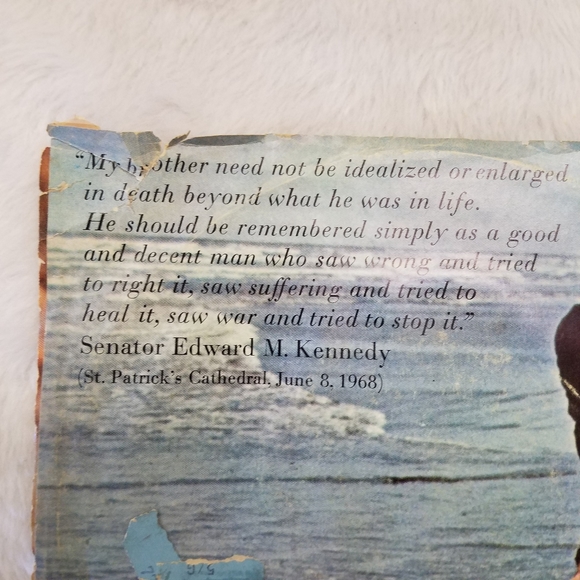 “My brother need not be idealized or enlarged
in death beyond what he was in life.
He should be remembered simply as a good
and decent man who saw wrong and tried
to right it, saw suffering and tried to
heal it, saw war and tried to stop it.”
Senator Edward M. Kennedy
(St. Patrick's Cathedral, June 8, 1968)